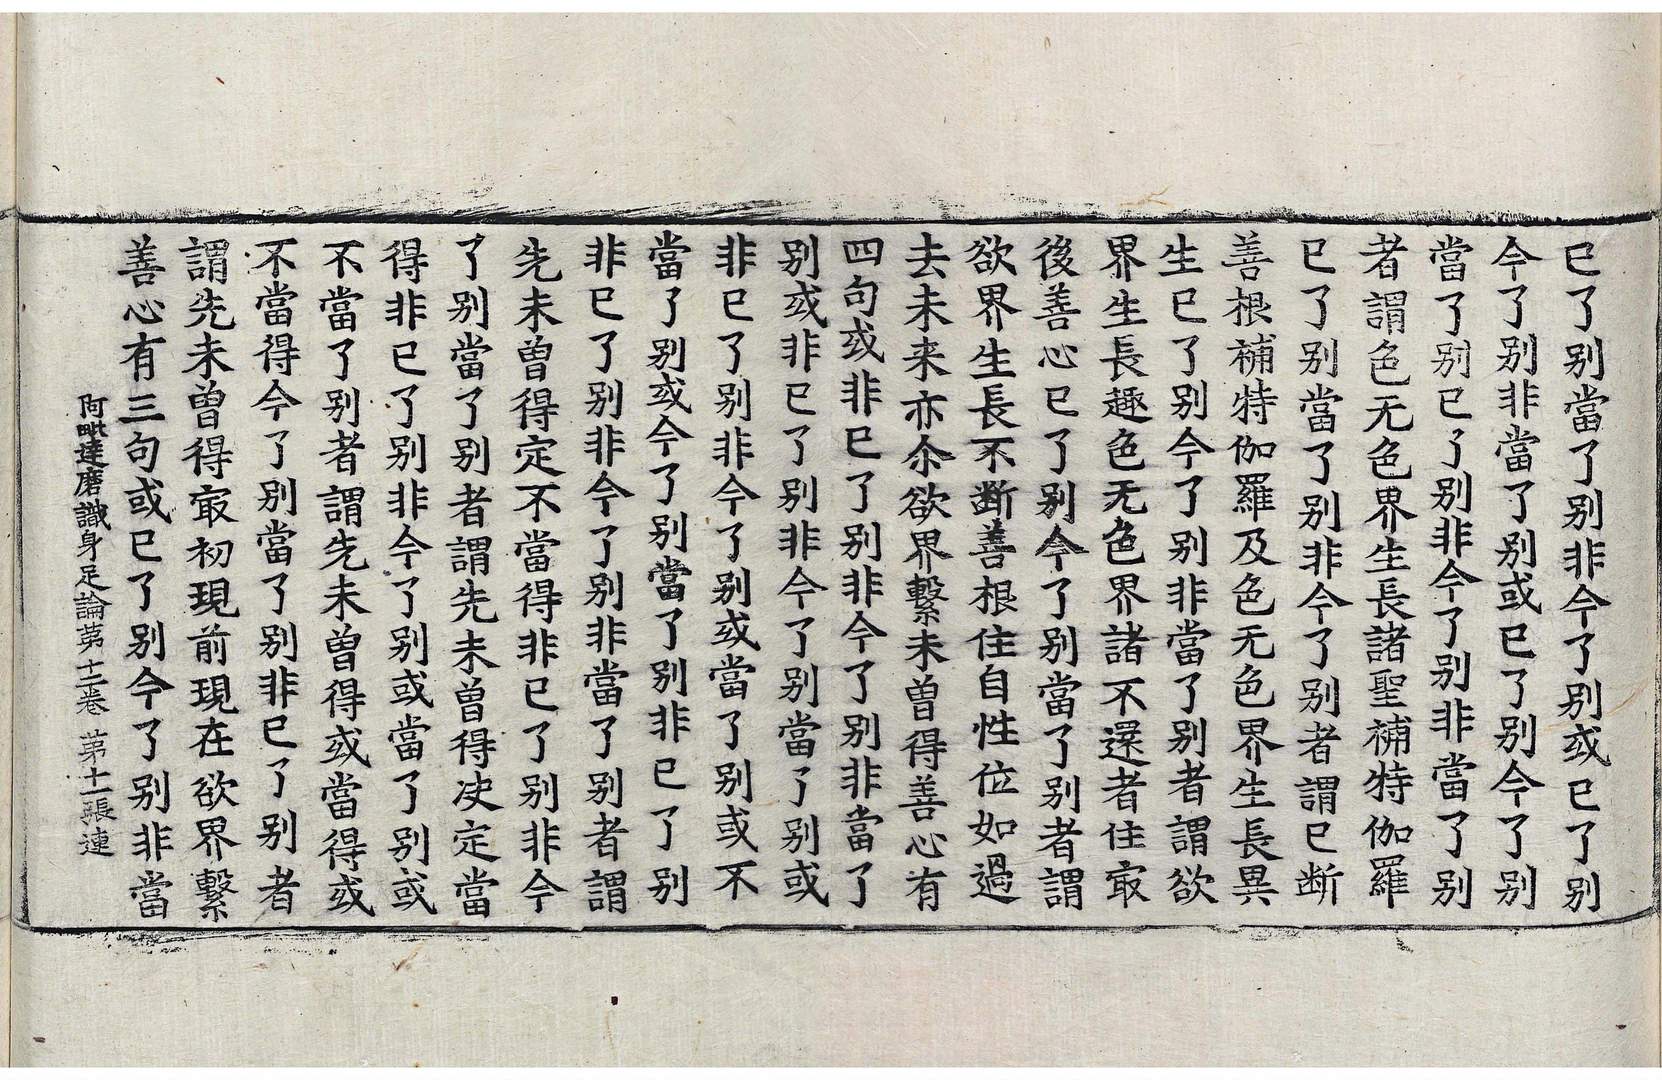 已了别當了别非今了别或已了别
今了别非當了别或已了别今了别
當了别已了别非今了别非當了别
者謂色无色界生長諸聖補特伽羅
已了别當了别非今了别者謂已断
善根補特伽羅及色无色界生長異
生已了别今了别非當了别者謂欲
界生長趣色无色界諸不還者住㝡
後善心已了别今了别當了别者謂
欲界生長不断善根住自性位如過
去未来亦尒欲界繫未曽得善心有
四句或非已了别非今了别非當了
别或非已了别非今了别當了别或
非已了别非今了别或當了别或不
當了别或今了别當了别非已了别
非已了别非今了别非當了别者謂
先未曽得定不當得非已了别非今
了别當了别者謂先未曽得决定當
得非已了别非今了别或當了别或
不當了别者謂先未曽得或當得或
不當得今了别當了别非已了别者
謂先未曽得㝡初現前現在欲界繫
善心有三句或已了别今了别非當
阿毗達磨識身足論苐十二卷 苐十一張 連